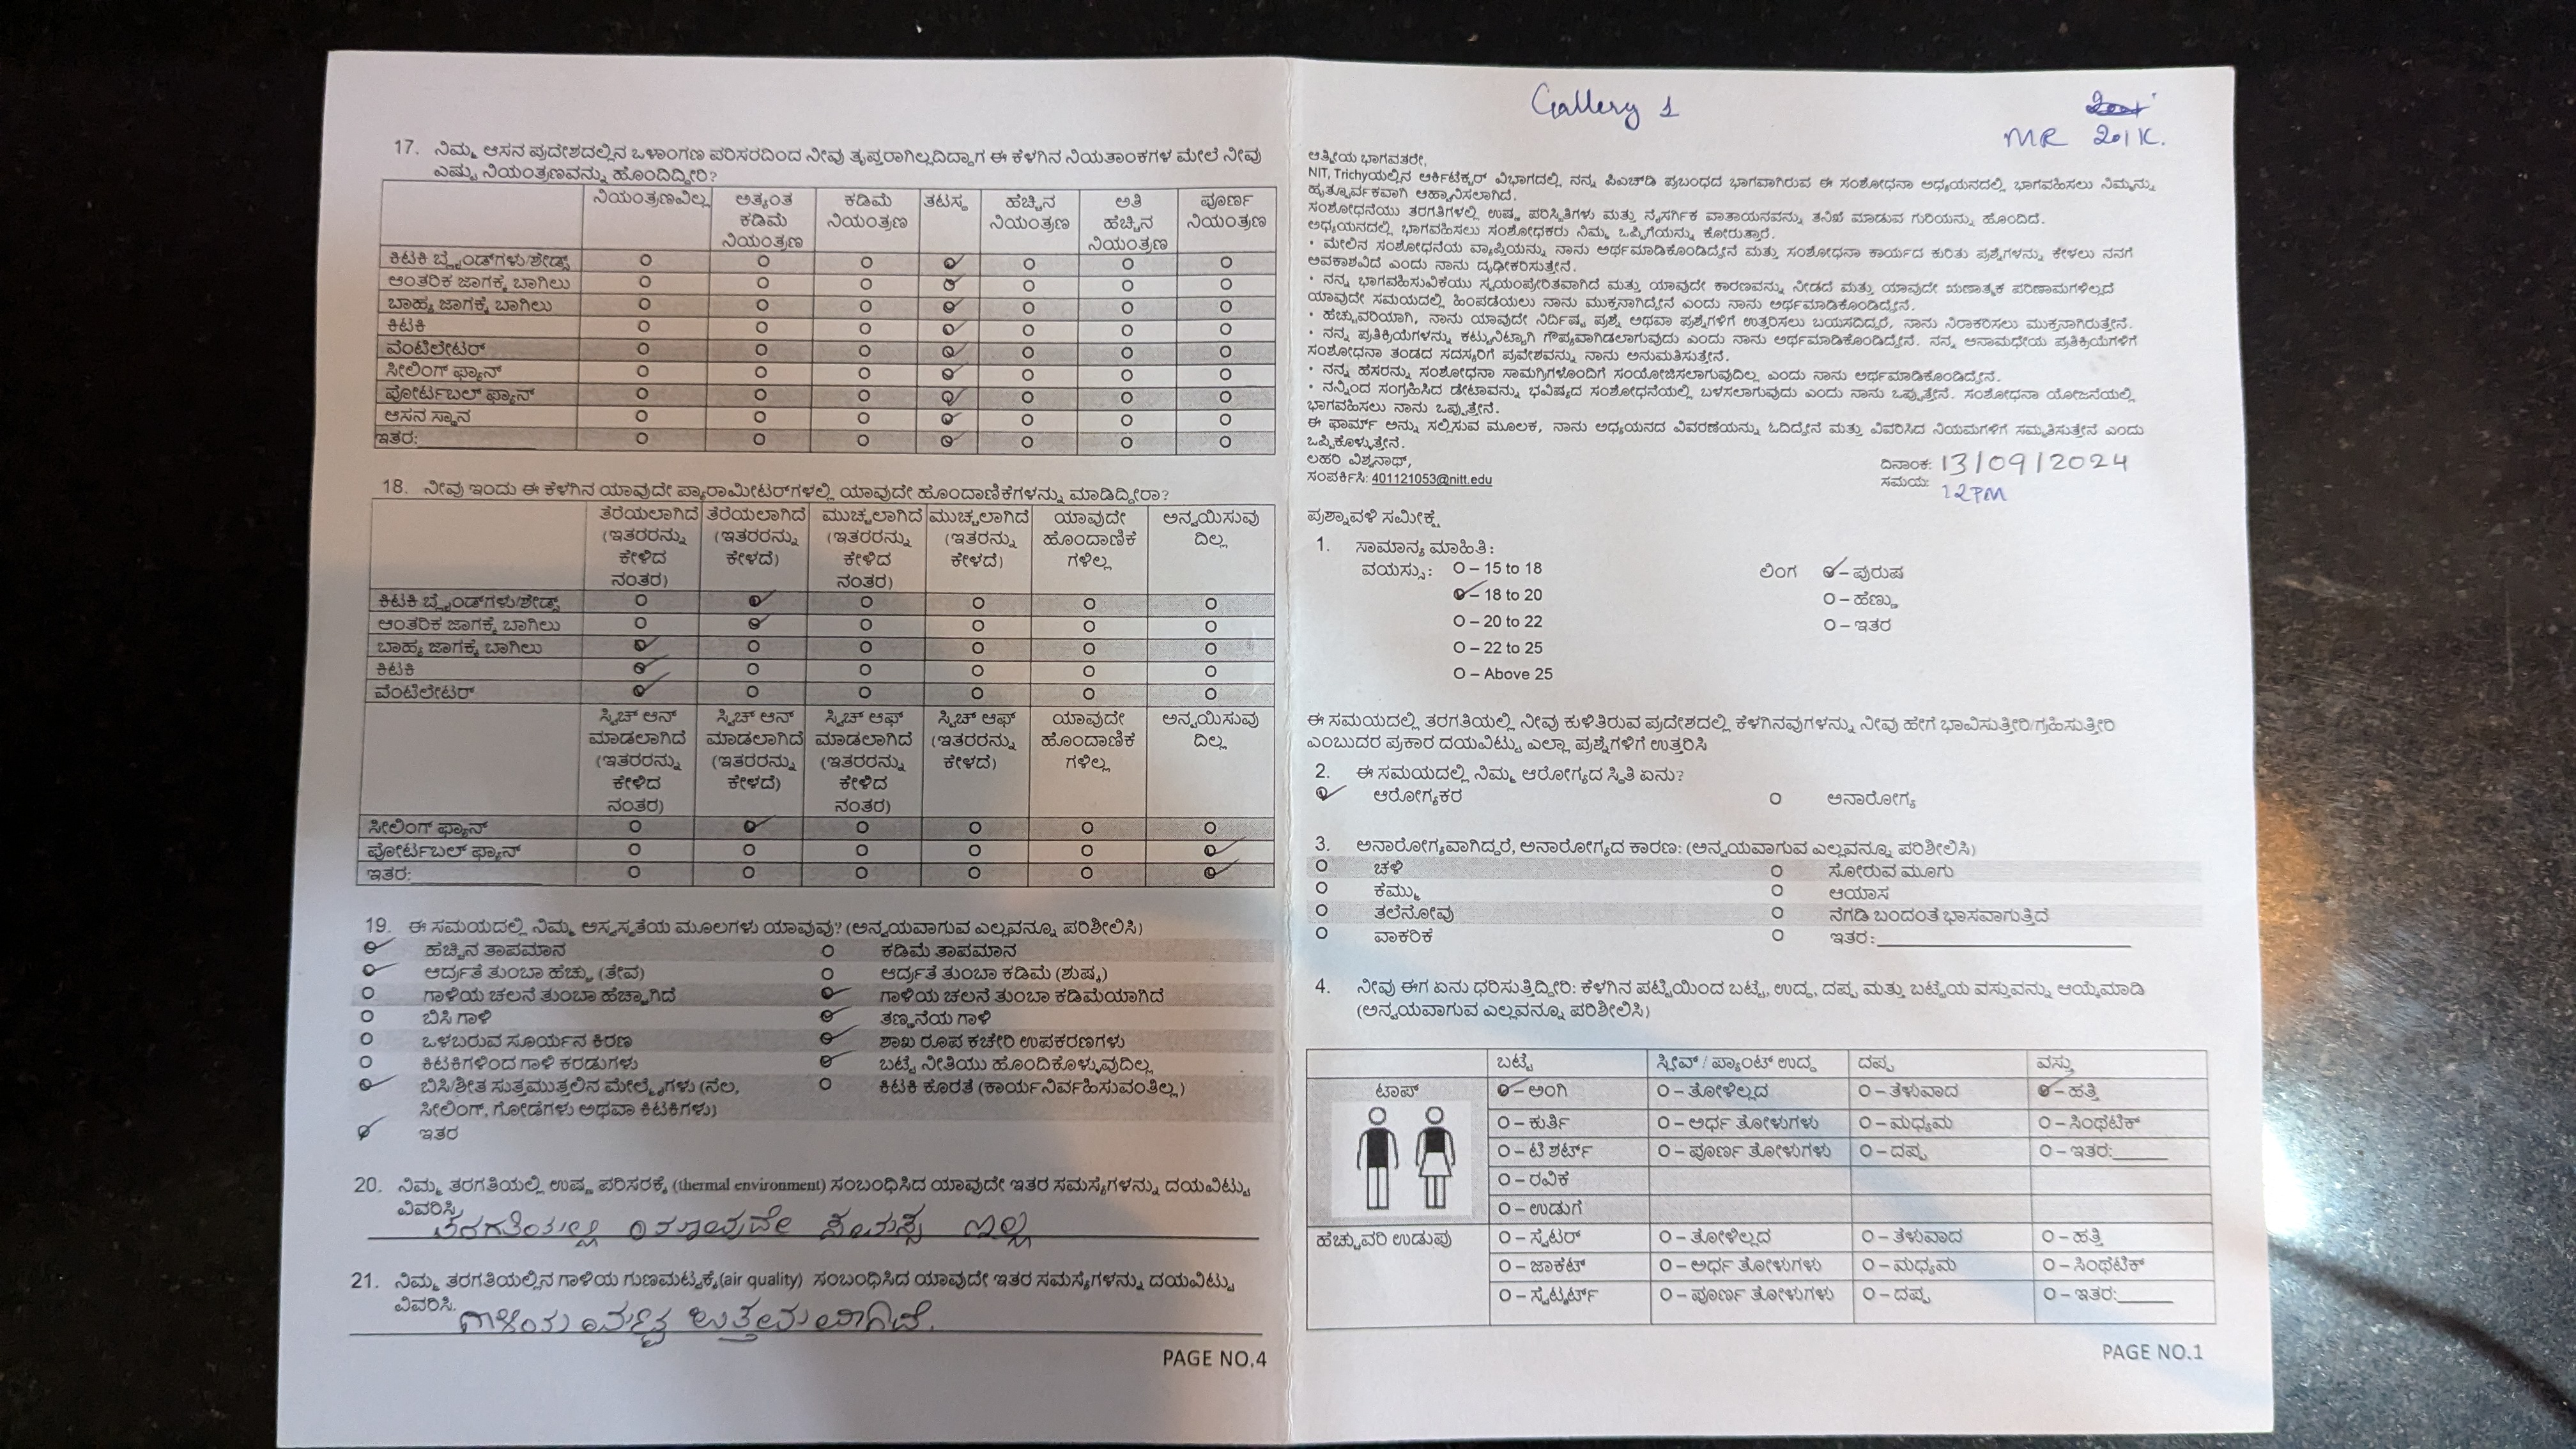 17. ನಿಮ್ಮ ಆಸನ ಪ್ರದೇಶದಲ್ಲಿನ ಒಳಾಂಗಣ ಪರಿಸರದಿಂದ ನೀವು ತೃಪ್ತರಾಗಿಲ್ಲದಿದ್ದಾಗ ಈ ಕೆಳಗಿನ ನಿಯತಾಂಕಗಳ ಮೇಲೆ ನೀವು
ಎಷ್ಟು ನಿಯಂತ್ರಣವನ್ನು ಹೊಂದಿದ್ದೀರಿ?
ನಿಯಂತ್ರಣವಿಲ್ಲ ಅತ್ಯಂತ ಕಡಿಮೆ ನಿಯಂತ್ರಣ ಕಡಿಮೆ ನಿಯಂತ್ರಣ ತಟಸ್ಥ ಹೆಚ್ಚಿನ ನಿಯಂತ್ರಣ ಅತಿ ಹೆಚ್ಚಿನ ನಿಯಂತ್ರಣ ಪೂರ್ಣ ನಿಯಂತ್ರಣ
ಕಿಟಕಿ ಬ್ಲೈಂಡ್‌ಗಳು/ಶೇಡ್ಸ್
ಆಂತರಿಕ ಜಾಗಕ್ಕೆ ಬಾಗಿಲು
ಬಾಹ್ಯ ಜಾಗಕ್ಕೆ ಬಾಗಿಲು
ಕಿಟಕಿ
ವೆಂಟಿಲೇಟರ್
ಸೀಲಿಂಗ್ ಫ್ಯಾನ್
ಪೋರ್ಟಬಲ್ ಫ್ಯಾನ್
ಆಸನ ಸ್ಥಾನ
ಇತರ:
18. ನೀವು ಇಂದು ಈ ಕೆಳಗಿನ ಯಾವುದೇ ಪ್ಯಾರಾಮೀಟರ್‌ಗಳಲ್ಲಿ ಯಾವುದೇ ಹೊಂದಾಣಿಕೆಗಳನ್ನು ಮಾಡಿದ್ದೀರಾ?
ತೆರೆಯಲಾಗಿದೆ (ಇತರರನ್ನು ಕೇಳಿದ ನಂತರ) ತೆರೆಯಲಾಗಿದೆ (ಇತರರನ್ನು ಕೇಳದೆ) ಮುಚ್ಚಲಾಗಿದೆ (ಇತರರನ್ನು ಕೇಳಿದ ನಂತರ) ಮುಚ್ಚಲಾಗಿದೆ (ಇತರರನ್ನು ಕೇಳದೆ) ಯಾವುದೇ ಹೊಂದಾಣಿಕೆ ಗಳಿಲ್ಲ ಅನ್ವಯಿಸುವು ದಿಲ್ಲ
ಕಿಟಕಿ ಬ್ಲೈಂಡ್‌ಗಳು/ಶೇಡ್ಸ್
ಆಂತರಿಕ ಜಾಗಕ್ಕೆ ಬಾಗಿಲು
ಬಾಹ್ಯ ಜಾಗಕ್ಕೆ ಬಾಗಿಲು
ಕಿಟಕಿ
ವೆಂಟಿಲೇಟರ್
ಸ್ವಿಚ್ ಆನ್ ಮಾಡಲಾಗಿದೆ (ಇತರರನ್ನು ಕೇಳಿದ ನಂತರ) ಸ್ವಿಚ್ ಆನ್ ಮಾಡಲಾಗಿದೆ (ಇತರರನ್ನು ಕೇಳದೆ) ಸ್ವಿಚ್ ಆಫ್ ಮಾಡಲಾಗಿದೆ (ಇತರರನ್ನು ಕೇಳಿದ ನಂತರ) ಸ್ವಿಚ್ ಆಫ್ (ಇತರರನ್ನು ಕೇಳದೆ) ಯಾವುದೇ ಹೊಂದಾಣಿಕೆ ಗಳಿಲ್ಲ ಅನ್ವಯಿಸುವು ದಿಲ್ಲ
ಸೀಲಿಂಗ್ ಫ್ಯಾನ್
ಪೋರ್ಟಬಲ್ ಫ್ಯಾನ್
ಇತರ:
19. ಈ ಸಮಯದಲ್ಲಿ ನಿಮ್ಮ ಅಸ್ವಸ್ಥತೆಯ ಮೂಲಗಳು ಯಾವುವು? (ಅನ್ವಯವಾಗುವ ಎಲ್ಲವನ್ನೂ ಪರಿಶೀಲಿಸಿ)
ಹೆಚ್ಚಿನ ತಾಪಮಾನ ಕಡಿಮೆ ತಾಪಮಾನ
ಆರ್ದ್ರತೆ ತುಂಬಾ ಹೆಚ್ಚು (ತೇವ) ಆರ್ದ್ರತೆ ತುಂಬಾ ಕಡಿಮೆ (ಶುಷ್ಕ)
ಗಾಳಿಯ ಚಲನೆ ತುಂಬಾ ಹೆಚ್ಚಾಗಿದೆ ಗಾಳಿಯ ಚಲನೆ ತುಂಬಾ ಕಡಿಮೆಯಾಗಿದೆ
ಬಿಸಿ ಗಾಳಿ ತಣ್ಣನೆಯ ಗಾಳಿ
ಒಳಬರುವ ಸೂರ್ಯನ ಕಿರಣ ಶಾಖ ರೂಪ ಕಚೇರಿ ಉಪಕರಣಗಳು
ಕಿಟಕಿಗಳಿಂದ ಗಾಳಿ ಕರಡುಗಳು ಬಟ್ಟೆ ನೀತಿಯು ಹೊಂದಿಕೊಳ್ಳುವುದಿಲ್ಲ
ಬಿಸಿ/ಶೀತ ಸುತ್ತಮುತ್ತಲಿನ ಮೇಲ್ಮೈಗಳು (ನೆಲ, ಕಿಟಕಿ ಕೊರತೆ (ಕಾರ್ಯನಿರ್ವಹಿಸುವಂತಿಲ್ಲ)
ಸೀಲಿಂಗ್, ಗೋಡೆಗಳು ಅಥವಾ ಕಿಟಕಿಗಳು)
ಇತರ
20. ನಿಮ್ಮ ತರಗತಿಯಲ್ಲಿ ಉಷ್ಣ ಪರಿಸರಕ್ಕೆ (thermal environment) ಸಂಬಂಧಿಸಿದ ಯಾವುದೇ ಇತರ ಸಮಸ್ಯೆಗಳನ್ನು ದಯವಿಟ್ಟು
ವಿವರಿಸಿ
ತರಗತಿಯಲ್ಲಿ ಯಾವುದೇ ಸಮಸ್ಯೆ ಇಲ್ಲ
21. ನಿಮ್ಮ ತರಗತಿಯಲ್ಲಿನ ಗಾಳಿಯ ಗುಣಮಟ್ಟಕ್ಕೆ(air quality) ಸಂಬಂಧಿಸಿದ ಯಾವುದೇ ಇತರ ಸಮಸ್ಯೆಗಳನ್ನು ದಯವಿಟ್ಟು
ವಿವರಿಸಿ.
ಗಾಳಿಯ ಉತ್ತಮವಾಗಿದೆ.
PAGE NO.4
Gallery 1
MR 201K.
ಆತ್ಮೀಯ ಭಾಗವತರೇ,
NIT, Trichyಯಲ್ಲಿನ ಆರ್ಕಿಟೆಕ್ಚರ್ ವಿಭಾಗದಲ್ಲಿ ನನ್ನ ಪಿಎಚ್‌ಡಿ ಪ್ರಬಂಧದ ಭಾಗವಾಗಿರುವ ಈ ಸಂಶೋಧನಾ ಅಧ್ಯಯನದಲ್ಲಿ ಭಾಗವಹಿಸಲು ನಿಮ್ಮನ್ನು
ಹೃತ್ಪೂರ್ವಕವಾಗಿ ಆಹ್ವಾನಿಸಲಾಗಿದೆ.
ಸಂಶೋಧನೆಯು ತರಗತಿಗಳಲ್ಲಿ ಉಷ್ಣ ಪರಿಸ್ಥಿತಿಗಳು ಮತ್ತು ನೈಸರ್ಗಿಕ ವಾತಾಯನವನ್ನು ತನಿಖೆ ಮಾಡುವ ಗುರಿಯನ್ನು ಹೊಂದಿದೆ.
ಅಧ್ಯಯನದಲ್ಲಿ ಭಾಗವಹಿಸಲು ಸಂಶೋಧಕರು ನಿಮ್ಮ ಒಪ್ಪಿಗೆಯನ್ನು ಕೋರುತ್ತಾರೆ.
• ಮೇಲಿನ ಸಂಶೋಧನೆಯ ವ್ಯಾಪ್ತಿಯನ್ನು ನಾನು ಅರ್ಥಮಾಡಿಕೊಂಡಿದ್ದೇನೆ ಮತ್ತು ಸಂಶೋಧನಾ ಕಾರ್ಯದ ಕುರಿತು ಪ್ರಶ್ನೆಗಳನ್ನು ಕೇಳಲು ನನಗೆ
ಅವಕಾಶವಿದೆ ಎಂದು ನಾನು ದೃಢೀಕರಿಸುತ್ತೇನೆ.
• ನನ್ನ ಭಾಗವಹಿಸುವಿಕೆಯು ಸ್ವಯಂಪ್ರೇರಿತವಾಗಿದೆ ಮತ್ತು ಯಾವುದೇ ಕಾರಣವನ್ನು ನೀಡದೆ ಮತ್ತು ಯಾವುದೇ ಋಣಾತ್ಮಕ ಪರಿಣಾಮಗಳಿಲ್ಲದೆ
ಯಾವುದೇ ಸಮಯದಲ್ಲಿ ಹಿಂಪಡೆಯಲು ನಾನು ಮುಕ್ತನಾಗಿದ್ದೇನೆ ಎಂದು ನಾನು ಅರ್ಥಮಾಡಿಕೊಂಡಿದ್ದೇನೆ.
• ಹೆಚ್ಚುವರಿಯಾಗಿ, ನಾನು ಯಾವುದೇ ನಿರ್ದಿಷ್ಟ ಪ್ರಶ್ನೆ ಅಥವಾ ಪ್ರಶ್ನೆಗಳಿಗೆ ಉತ್ತರಿಸಲು ಬಯಸದಿದ್ದರೆ, ನಾನು ನಿರಾಕರಿಸಲು ಮುಕ್ತನಾಗಿರುತ್ತೇನೆ.
• ನನ್ನ ಪ್ರತಿಕ್ರಿಯೆಗಳನ್ನು ಕಟ್ಟುನಿಟ್ಟಾಗಿ ಗೌಪ್ಯವಾಗಿಡಲಾಗುವುದು ಎಂದು ನಾನು ಅರ್ಥಮಾಡಿಕೊಂಡಿದ್ದೇನೆ. ನನ್ನ ಅನಾಮಧೇಯ ಪ್ರತಿಕ್ರಿಯೆಗಳಿಗೆ
ಸಂಶೋಧನಾ ತಂಡದ ಸದಸ್ಯರಿಗೆ ಪ್ರವೇಶವನ್ನು ನಾನು ಅನುಮತಿಸುತ್ತೇನೆ.
• ನನ್ನ ಹೆಸರನ್ನು ಸಂಶೋಧನಾ ಸಾಮಗ್ರಿಗಳೊಂದಿಗೆ ಸಂಯೋಜಿಸಲಾಗುವುದಿಲ್ಲ ಎಂದು ನಾನು ಅರ್ಥಮಾಡಿಕೊಂಡಿದ್ದೇನೆ.
• ನನ್ನಿಂದ ಸಂಗ್ರಹಿಸಿದ ಡೇಟಾವನ್ನು ಭವಿಷ್ಯದ ಸಂಶೋಧನೆಯಲ್ಲಿ ಬಳಸಲಾಗುವುದು ಎಂದು ನಾನು ಒಪ್ಪುತ್ತೇನೆ. ಸಂಶೋಧನಾ ಯೋಜನೆಯಲ್ಲಿ
ಭಾಗವಹಿಸಲು ನಾನು ಒಪ್ಪುತ್ತೇನೆ.
ಈ ಫಾರ್ಮ್ ಅನ್ನು ಸಲ್ಲಿಸುವ ಮೂಲಕ, ನಾನು ಅಧ್ಯಯನದ ವಿವರಣೆಯನ್ನು ಓದಿದ್ದೇನೆ ಮತ್ತು ವಿವರಿಸಿದ ನಿಯಮಗಳಿಗೆ ಸಮ್ಮತಿಸುತ್ತೇನೆ ಎಂದು
ಒಪ್ಪಿಕೊಳ್ಳುತ್ತೇನೆ.
ಲಹರಿ ವಿಶ್ವನಾಥ್,
ಸಂಪರ್ಕಿಸಿ: 401121053@nitt.edu
ದಿನಾಂಕ: 13/09/2024
ಸಮಯ: 12PM
ಪ್ರಶ್ನಾವಳಿ ಸಮೀಕ್ಷೆ
1. ಸಾಮಾನ್ಯ ಮಾಹಿತಿ:
ವಯಸ್ಸು: O – 15 to 18 ಲಿಂಗ O – ಪುರುಷ
O – 18 to 20 O – ಹೆಣ್ಣು
O – 20 to 22 O – ಇತರ
O – 22 to 25
O – Above 25
ಈ ಸಮಯದಲ್ಲಿ ತರಗತಿಯಲ್ಲಿ ನೀವು ಕುಳಿತಿರುವ ಪ್ರದೇಶದಲ್ಲಿ ಕೆಳಗಿನವುಗಳನ್ನು ನೀವು ಹೇಗೆ ಭಾವಿಸುತ್ತೀರಿ/ಗ್ರಹಿಸುತ್ತೀರಿ
ಎಂಬುದರ ಪ್ರಕಾರ ದಯವಿಟ್ಟು ಎಲ್ಲಾ ಪ್ರಶ್ನೆಗಳಿಗೆ ಉತ್ತರಿಸಿ
2. ಈ ಸಮಯದಲ್ಲಿ ನಿಮ್ಮ ಆರೋಗ್ಯದ ಸ್ಥಿತಿ ಏನು?
ಆರೋಗ್ಯಕರ ಅನಾರೋಗ್ಯ
3. ಅನಾರೋಗ್ಯವಾಗಿದ್ದರೆ, ಅನಾರೋಗ್ಯದ ಕಾರಣ: (ಅನ್ವಯವಾಗುವ ಎಲ್ಲವನ್ನೂ ಪರಿಶೀಲಿಸಿ)
ಚಳಿ ಸೋರುವ ಮೂಗು
ಕೆಮ್ಮು ಆಯಾಸ
ತಲೆನೋವು ನೆಗಡಿ ಬಂದಂತೆ ಭಾಸವಾಗುತ್ತಿದೆ
ವಾಕರಿಕೆ ಇತರ:
4. ನೀವು ಈಗ ಏನು ಧರಿಸುತ್ತಿದ್ದೀರಿ: ಕೆಳಗಿನ ಪಟ್ಟಿಯಿಂದ ಬಟ್ಟೆ, ಉದ್ದ, ದಪ್ಪ ಮತ್ತು ಬಟ್ಟೆಯ ವಸ್ತುವನ್ನು ಆಯ್ಕೆಮಾಡಿ
(ಅನ್ವಯವಾಗುವ ಎಲ್ಲವನ್ನೂ ಪರಿಶೀಲಿಸಿ)
ಬಟ್ಟೆ ಸ್ಲೀವ್ / ಪ್ಯಾಂಟ್ ಉದ್ದ ದಪ್ಪ ವಸ್ತು
ಟಾಪ್ O – ಅಂಗಿ O – ತೋಳಿಲ್ಲದ O – ತೆಳುವಾದ O – ಹತ್ತಿ
O – ಕುರ್ತಿ O – ಅರ್ಧ ತೋಳುಗಳು O – ಮಧ್ಯಮ O – ಸಿಂಥೆಟಿಕ್
O – ಟಿ ಶರ್ಟ್ O – ಪೂರ್ಣ ತೋಳುಗಳು O – ದಪ್ಪ O – ಇತರ:
O – ರವಿಕೆ
O – ಉಡುಗೆ
ಹೆಚ್ಚುವರಿ ಉಡುಪು O – ಸ್ವೆಟರ್ O – ತೋಳಿಲ್ಲದ O – ತೆಳುವಾದ O – ಹತ್ತಿ
O – ಜಾಕೆಟ್ O – ಅರ್ಧ ತೋಳುಗಳು O – ಮಧ್ಯಮ O – ಸಿಂಥೆಟಿಕ್
O – ಸ್ವೆಟ್ಶರ್ಟ್ O – ಪೂರ್ಣ ತೋಳುಗಳು O – ದಪ್ಪ O – ಇತರ:
PAGE NO.1